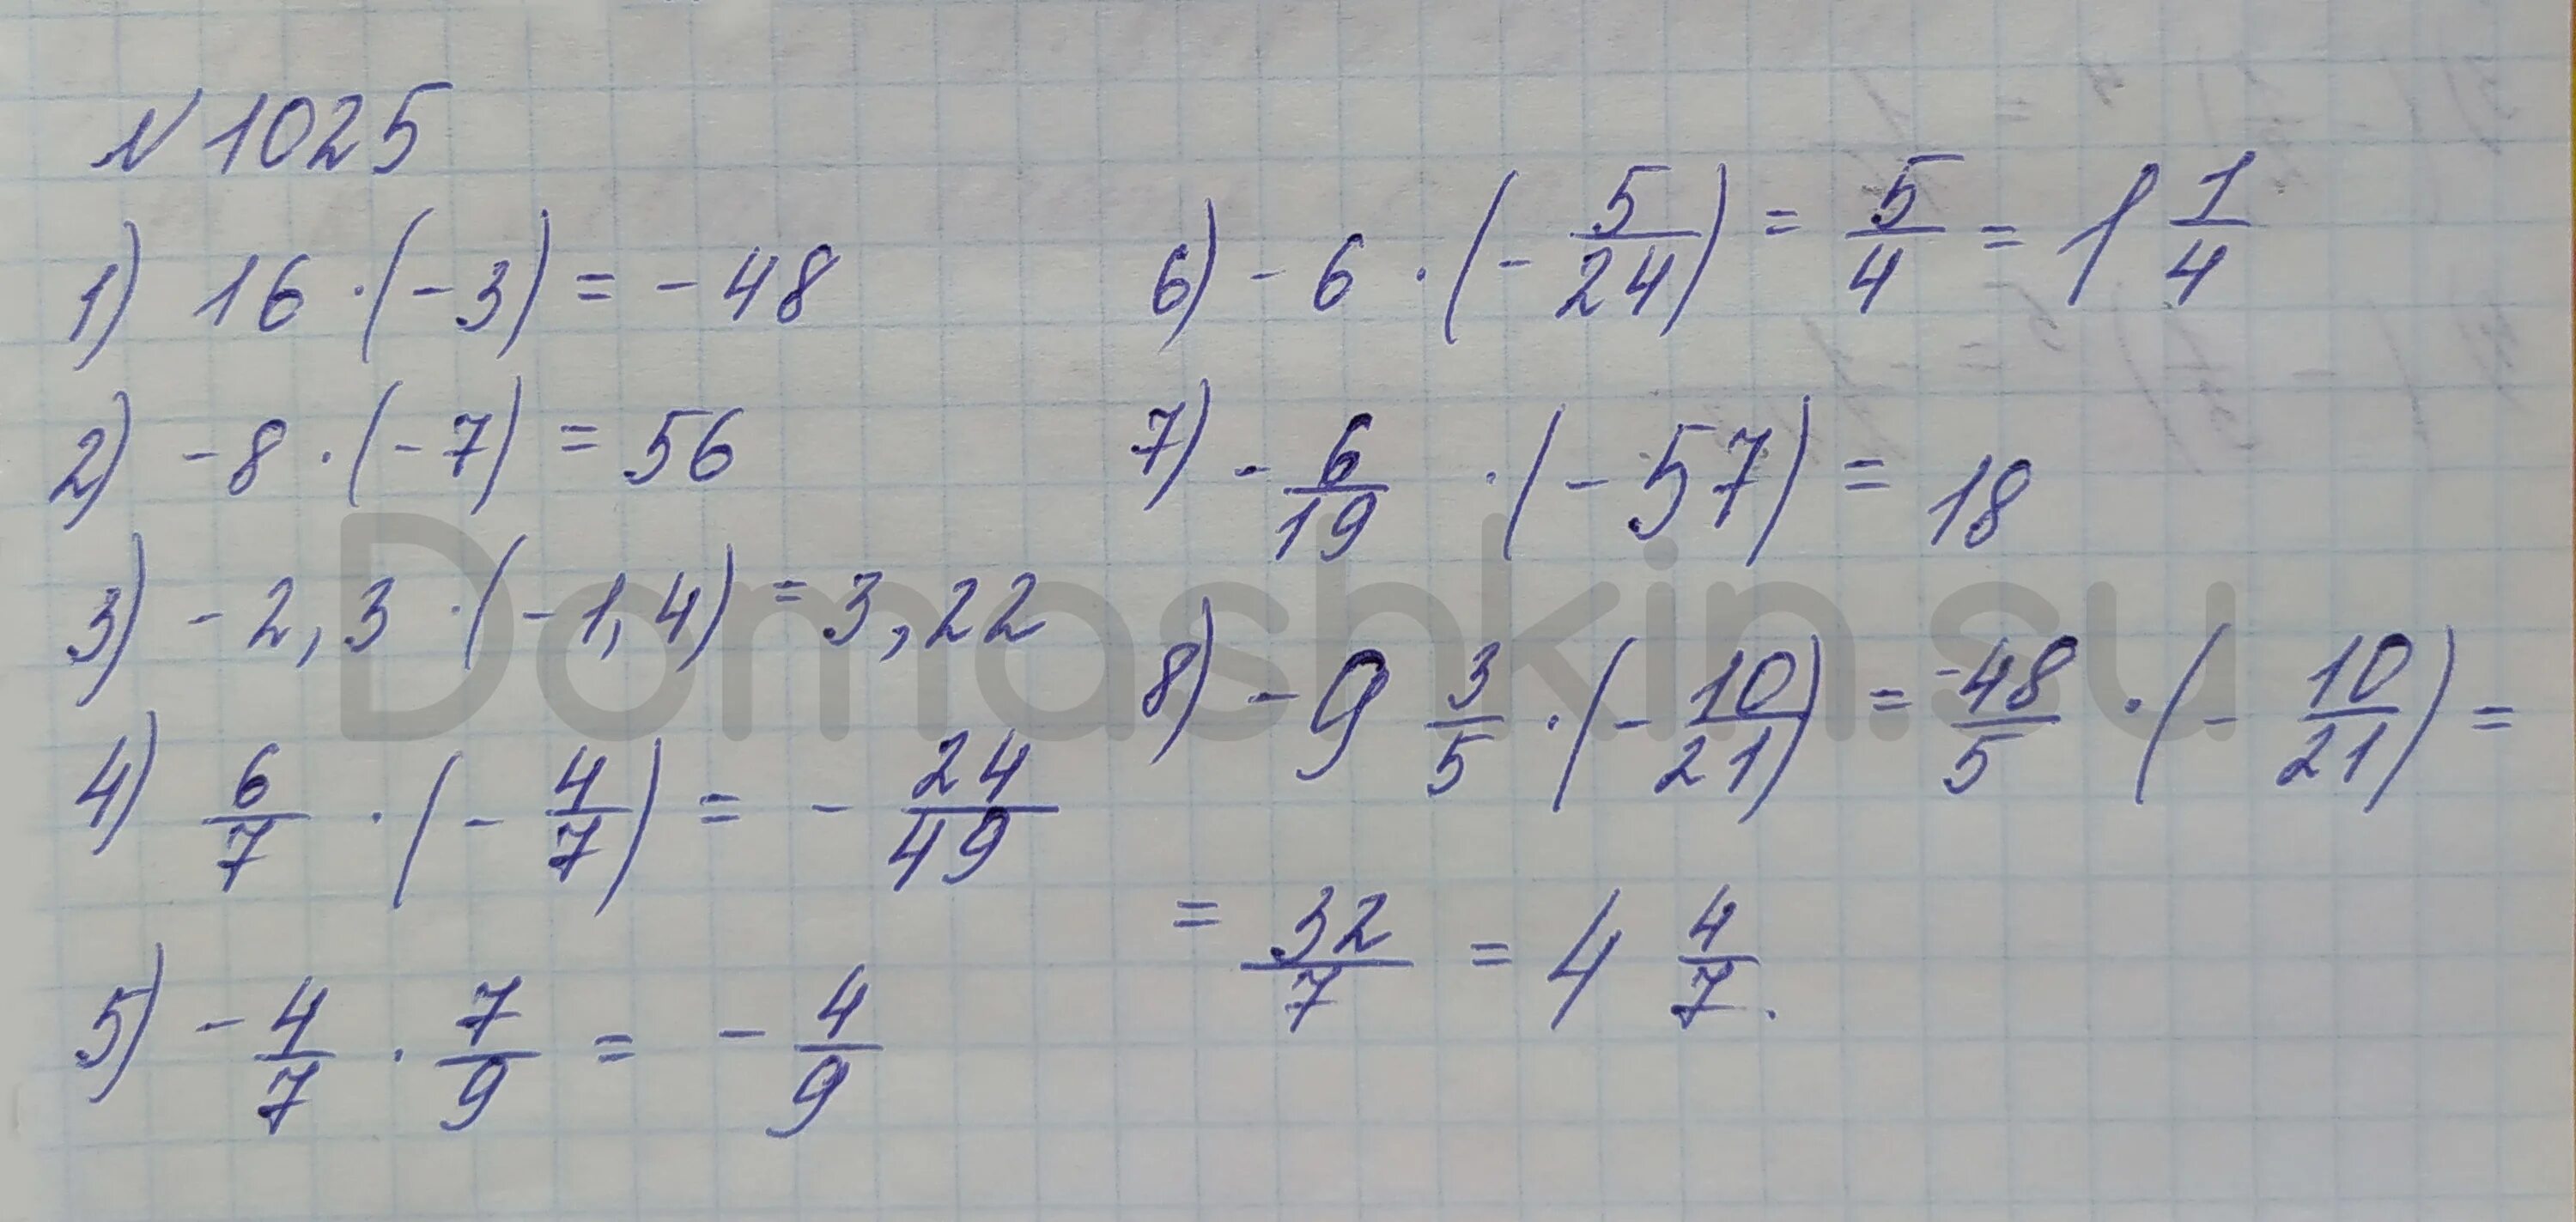 № 1025
1) 16 · (-3) = -48
2) -8 · (-7) = 56
3) -2,3 · (-1,4) = 3,22
4) 6/7 · (-4/7) = -24/49
5) -4/7 · 7/9 = -4/9
6) -6 · (-5/24) = 5/4 = 1 1/4
7) -6/19 · (-57) = 18
8) -9 3/5 · (-10/21) = -48/5 · (-10/21) =
= 32/7 = 4 4/7.
Domashkin.su